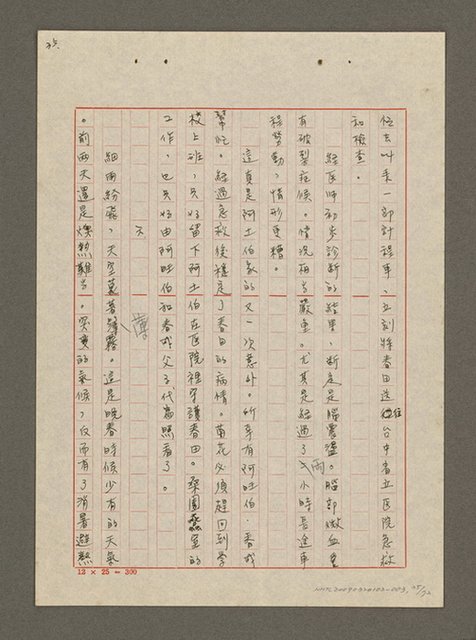 伍去叫來一部計程車，立刻將春田送往台中省立醫院急救
和檢查。
經医師初步診断的結果，断定是腦震溫。腦部微血管
有破裂症候。情況相当嚴重。尤其是經過了兩小時長途車
程勞動，情形更糟。
這真是阿土伯家的又一次意外。所幸有阿旺伯、春成
幫忙。經過急救後穩定了春田的病情。菊花必須趕回到学
校上班，只好留下阿土伯在医院裡守護春田。果園農室的
工作，也只好由阿旺伯和春成父子代為照看了。
六
細雨紛飛，天空罩著薄霧。這是晚春時候少有的天氣
。前両天還是燠熱難当。突変的氣候，反而有了消暑避熱
12 × 25 = 300
NMTL20090320102-003, 25/72